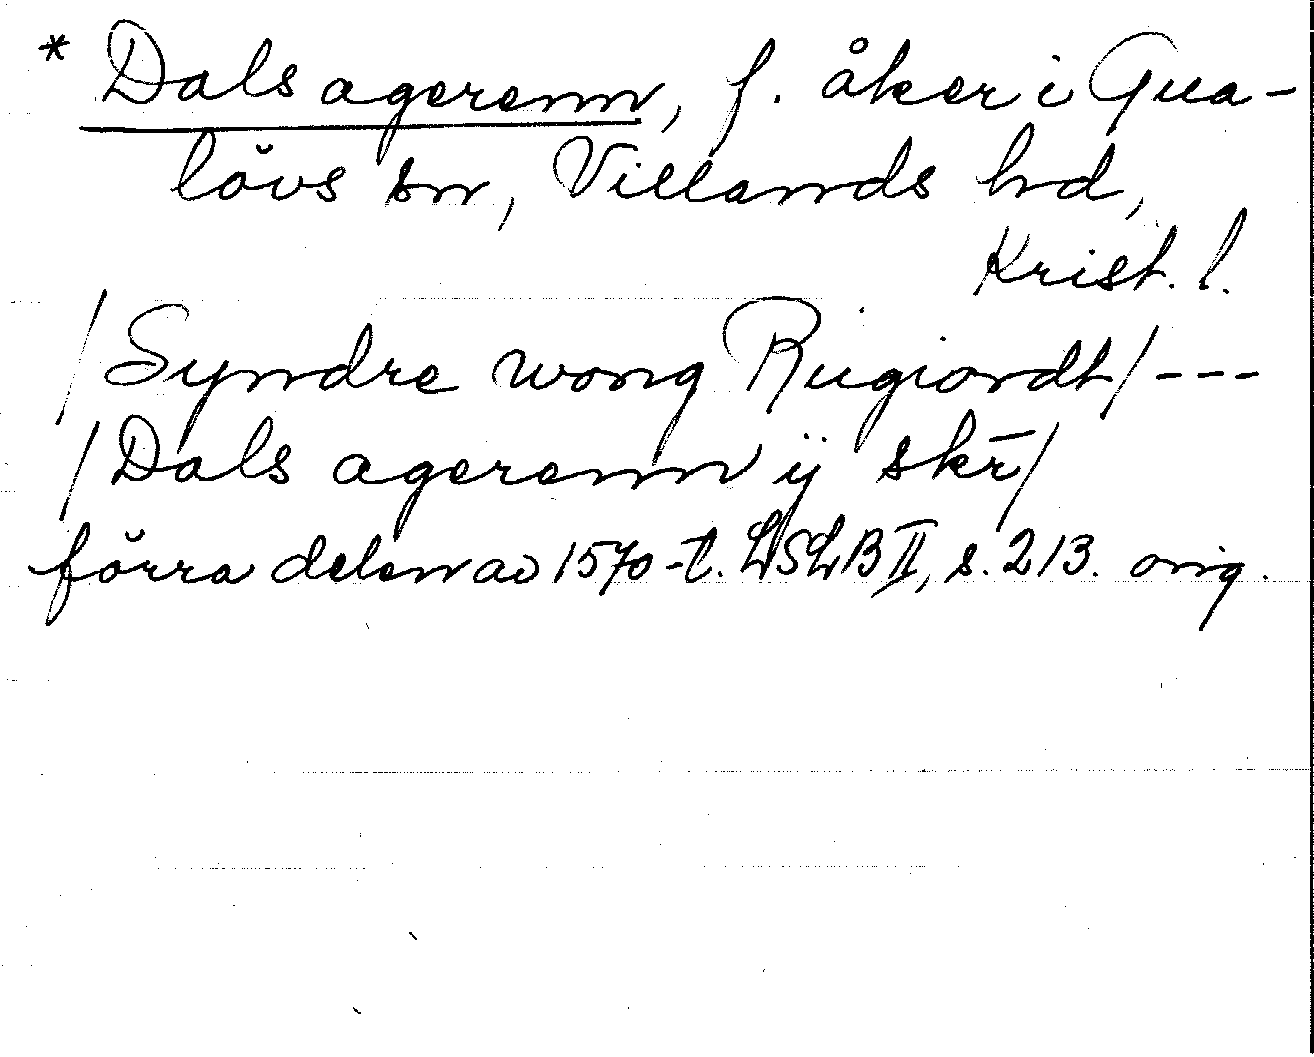 * Dals agerenn, f. åker i Gua-
lövs sn, Villands hd,
Krist. l.
/Syndre wong Rugiordt/---
/Dals agerenn ij skr̄/
förra delen av 1570-t. LSLB II, s. 213. orig.